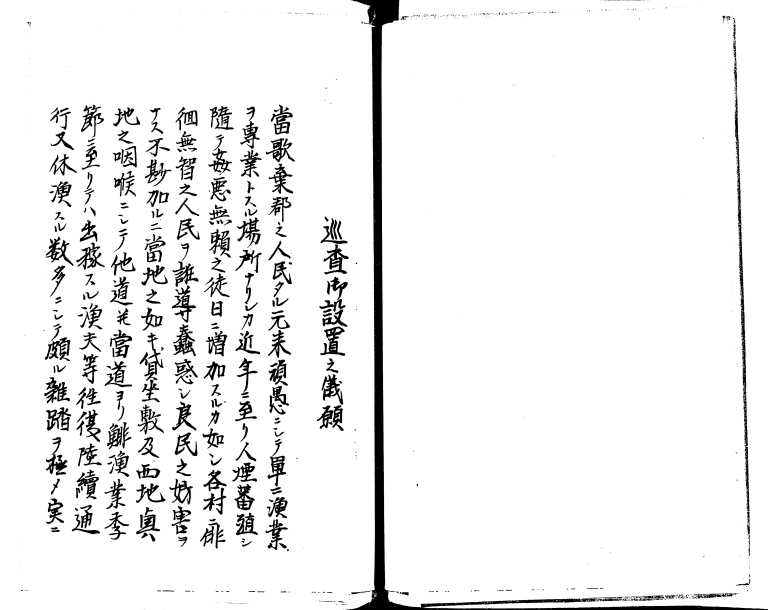 巡査御設置之儀願
當歌棄郡之人民タル元来頑愚ニシテ單ニ漁業
ヲ専業トスル場所ナリシカ近年ニ至リ人煙蕃殖シ
隨テ姦悪無頼之徒日ニ増加スルカ如シ各村ニ徘
徊無智之人民ヲ誰導蠱惑シ良民之妨害ヲ
ナス不尠加ルニ當地之如キ貸坐敷及西地奥
地之咽喉ニシテ他道并當道ヨリ鯡漁業季
節ニ至リテハ出稼スル漁夫等往復陸續通
行又休漁スル数多ニシテ頗ル雑踏ヲ極メ実ニ